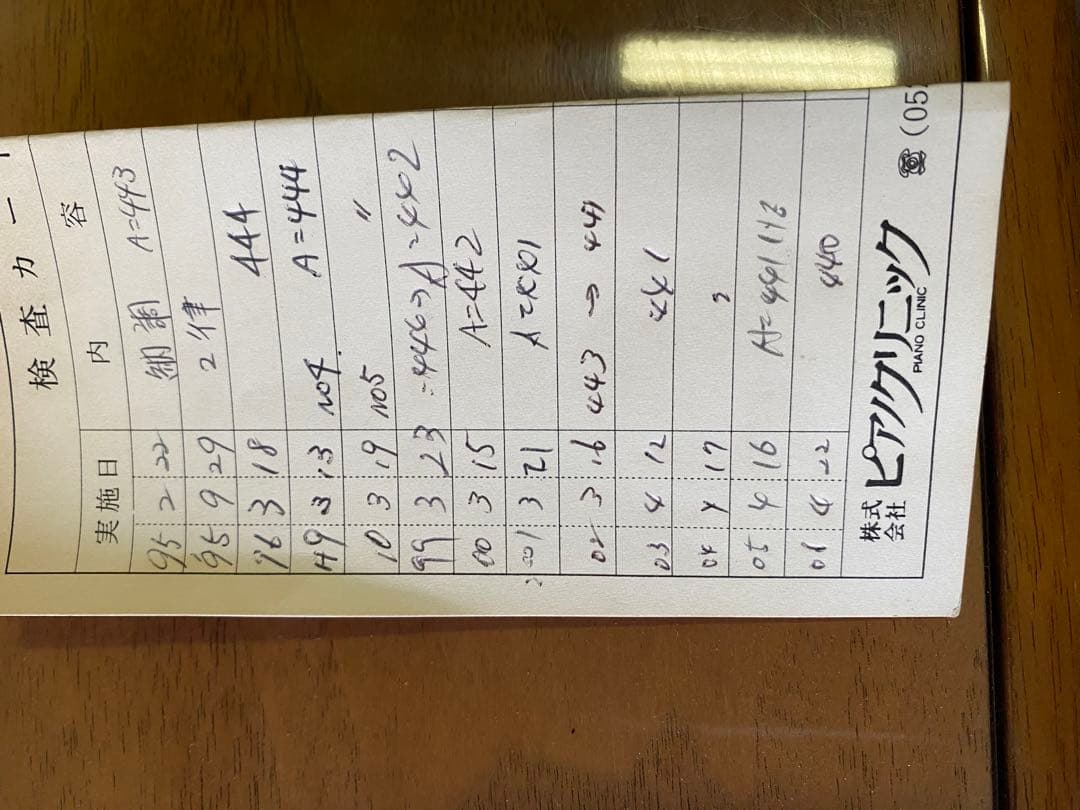 検査カー
実施日 内容
95 2 22 納調 A=443
95 9 29 2律
96 3 18 444
H9 3 13 NO4. A=444
10 3 19 NO5 〃
99 3 23 A=442
00 3 15 A=442
2001 3 21 A=441
02 3 16 443 → 441
03 4 12 441
04 4 17 〃
05 4 16 A=441Hz
4 22 440
株式会社 ピアノクリニック
PIANO CLINIC
(05